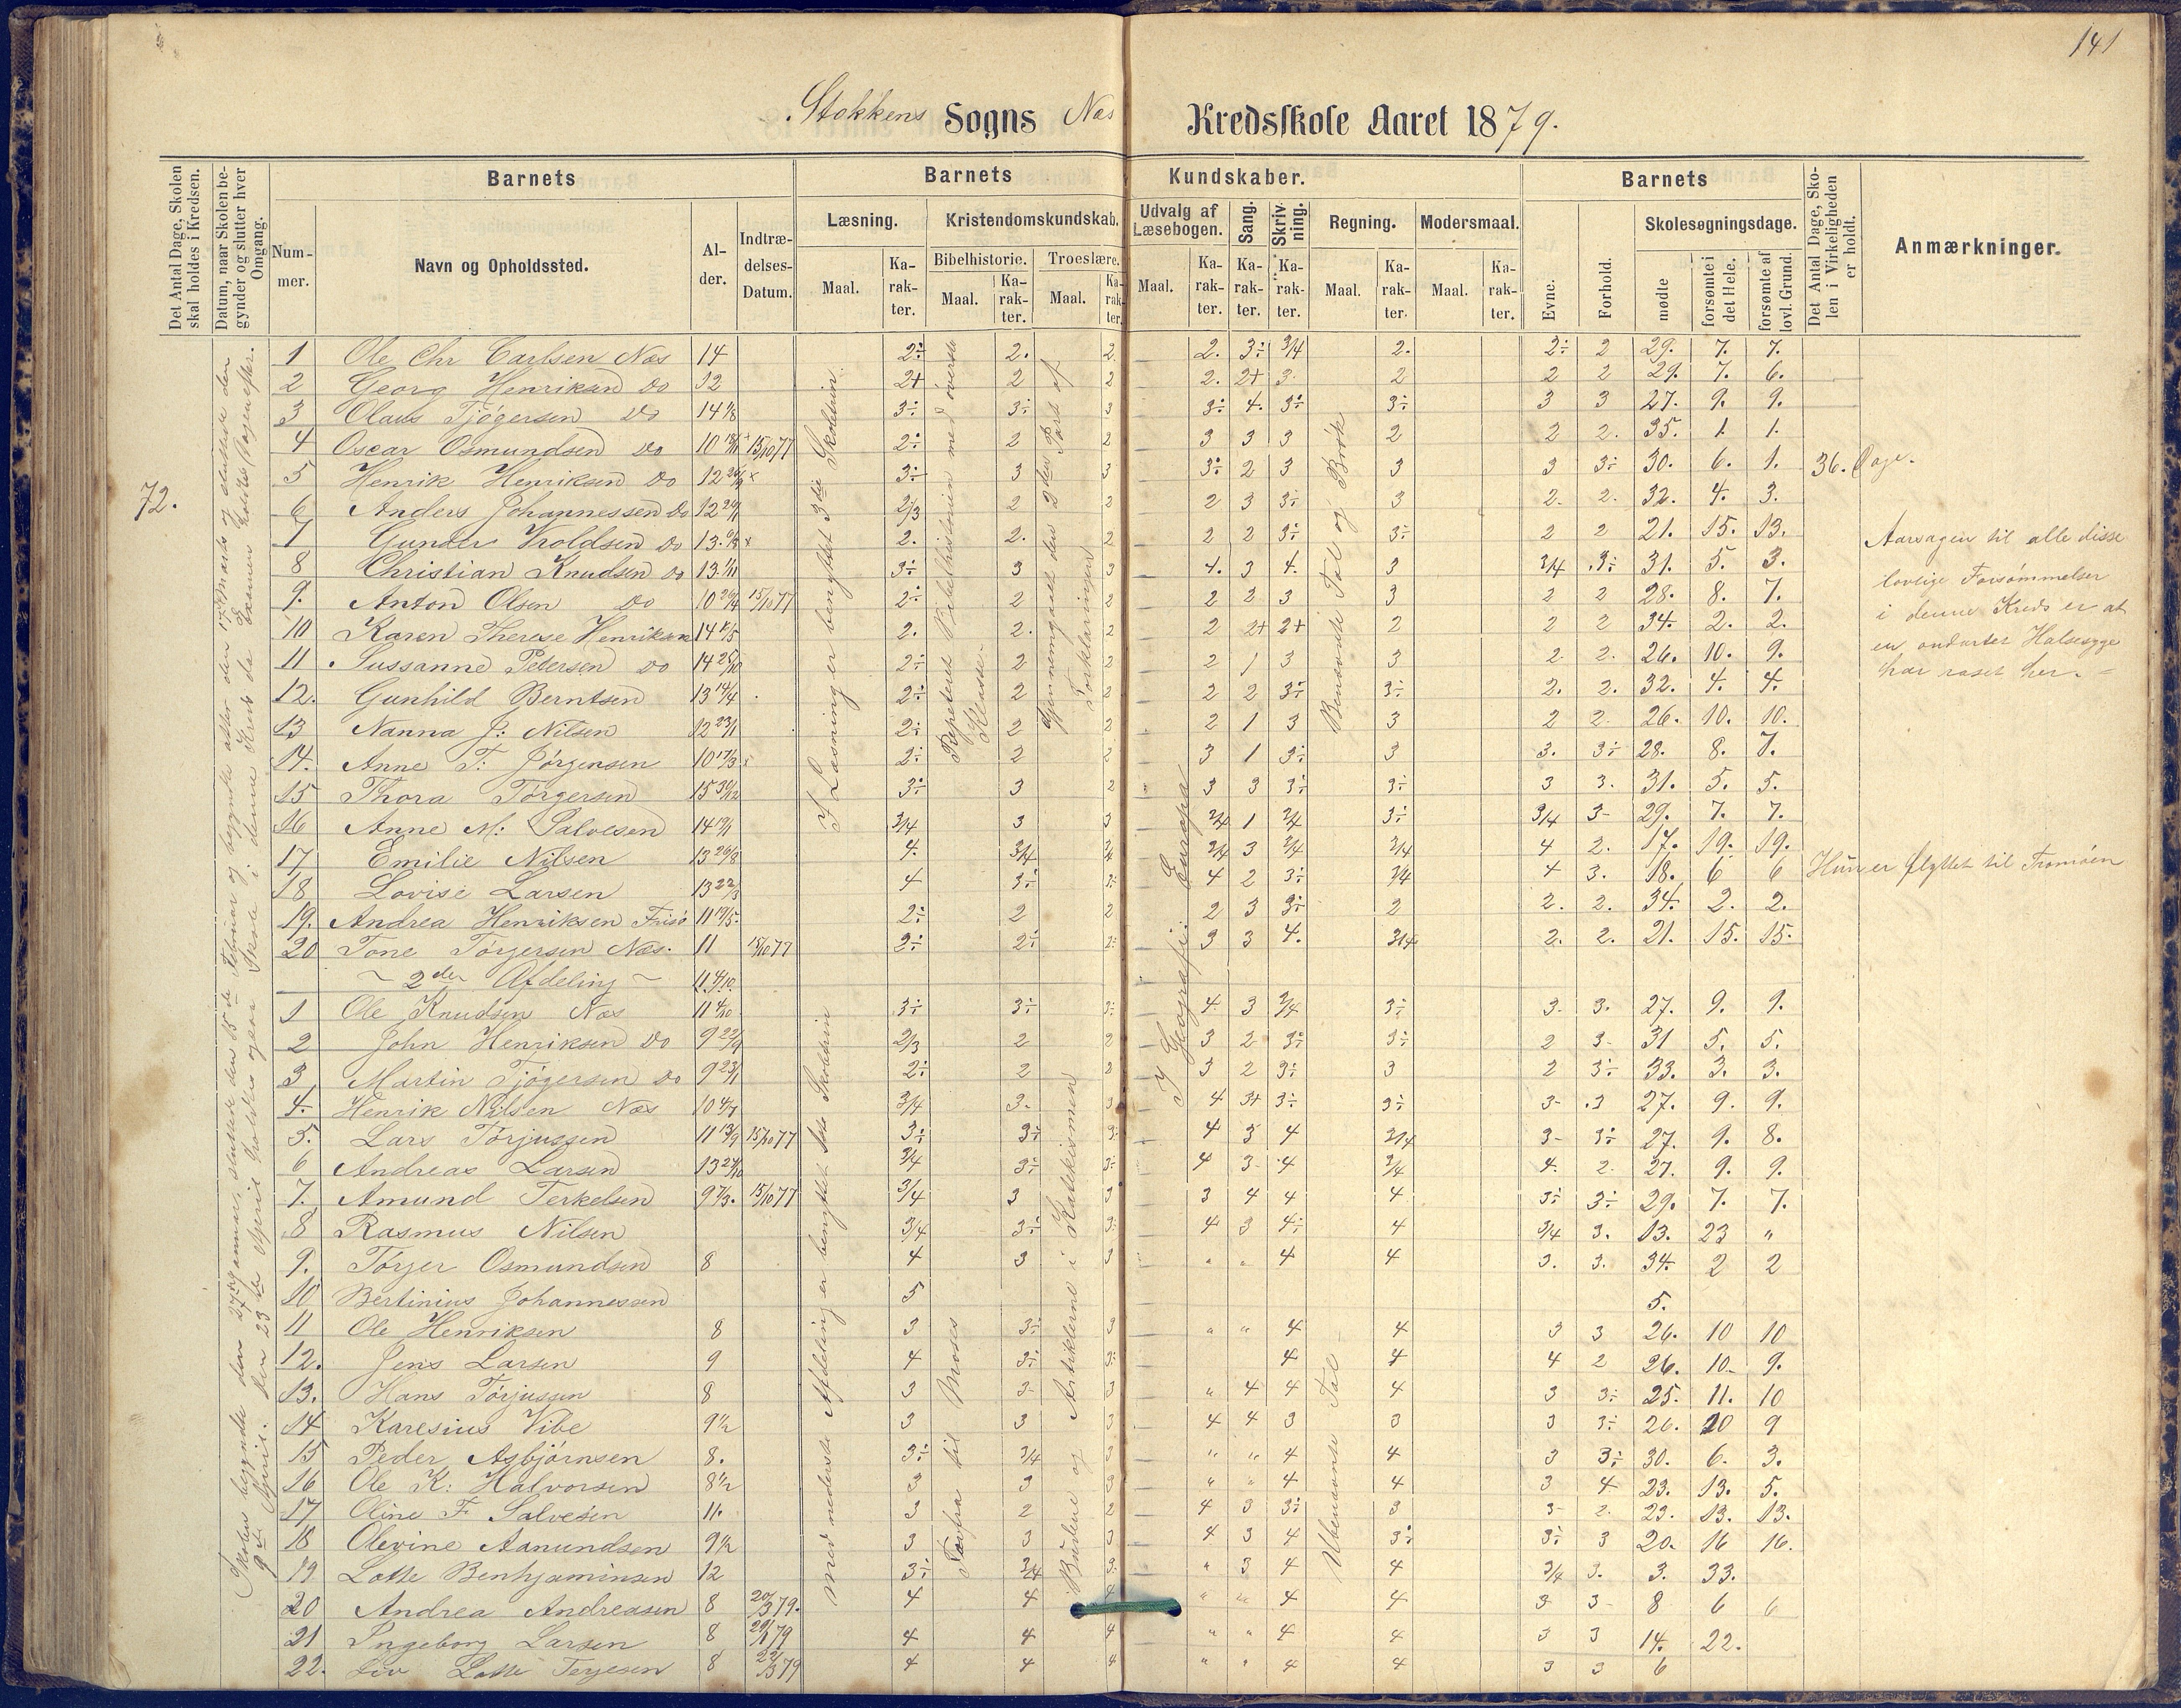 141
Stokkens Sogns Næs Kredsskole Aaret 1879.
Det Antal Dage, Skolen skal holdes i Kredsen.
Datum, naar Skolen begynder og slutter hver Omgang.
Barnets
Nummer.
Navn og Opholdssted.
Alder.
Indtrædelses-Datum.
Barnets Kundskaber.
Læsning.
Maal.
Karakter.
Kristendomskundskab.
Bibelhistorie.
Maal.
Karakter.
Troeslære.
Maal.
Karakter.
Udvalg af Læsebogen.
Maal.
Karakter.
Sang.
Karakter.
Skrivning.
Karakter.
Regning.
Maal.
Karakter.
Modersmaal.
Maal.
Karakter.
Barnets
Evne.
Forhold.
Skolesøgningsdage.
mødte
forsømte i det Hele.
forsømte af lovl. Grund.
Det Antal Dage, Skolen i Virkeligheden er holdt.
Anmærkninger.
72.
I Læsning er benyttet 3die Skoletrin
Repeteret Bibelhistorien med øverste Klasse.
Gjennemgaaet den 2den Part af Forklaringen
I Geografi: Europa
Benævnte Tal og Brøk
1 Ole Chr Carlsen Næs 14 2÷ 2. 2. 2. 3÷ 3/4 2. 2÷ 2 29. 7. 7.
2 Georg Henriksen Do 12 2+ 2 2 2. 2+ 3. 2 2 2 29. 7. 6.
3 Olaus Tjøgersen Do 14 3÷ 3÷ 3 3÷ 4. 3÷ 3÷ 3 3 27. 9. 9.
4 Oscar Osmundsen Do 10 15/10 77 2÷ 2 2 3 3 3 2 2 2. 35. 1. 1.
5 Henrik Henriksen Do 12 3÷ 3 3 3÷ 2 3 3 3 3÷ 30. 6. 1. 36. Dage.
6 Anders Johannessen Do 12 2/3 2 2 2 3 3÷ 3 2. 2. 32. 4. 3.
7 Gunder Vroldsen Do 13 2. 2. 2 2 2 3÷ 3÷ 2 2 21. 15. 13.
8 Christian Knudsen Do 13 3÷ 3 3 4. 3 4. 3 3/4 3÷ 31. 5. 3.
9. Anton Olsen Do 10 15/10 77 2÷ 2 2 2 2 3 3 2 2 28. 8. 7.
10 Karen Therese Henriksen 14 2. 2. 2 2 2+ 2+ 2 2 2 34. 2. 2.
11 Sussanne Petersen Do 14 25/10 2÷ 2 2 2 1 3 3 2. 2. 26. 10. 9.
12. Gunhild Berntsen 13 14/4 2÷ 2 2 2 2 3÷ 3÷ 2. 2. 32. 4. 4.
13 Nanna J: Nilsen 12 23/1 2÷ 2 2 2 1 3 3 2 2 26. 10. 10.
14. Anne T: Jørgensen 10 17/3 2÷ 2 2 3 1 3÷ 3 3. 3÷ 28. 8. 7.
15 Thora Tørgersen 15 30/12 3÷ 3 2 3 3 3÷ 3÷ 3 3. 31. 5. 5.
16 Anne M: Salvesen 14 3/4 3 3 3/4 1 3/4 3÷ 3/4 3- 29. 7. 7.
17 Emilie Nilsen 13 26/8 4. 3/4 3/4 3/4 3 3/4 3/4 4 2. 17. 19. 19.
18 Lovise Larsen 13 22/3 4 3÷ 3÷ 4 2 3÷ 3/4 4 3. 18. 6 6 Hun er flyttet til Tromøen
19. Andrea Henriksen Frisø 11 19/5 2÷ 2 2 2 3 3÷ 2 2. 2. 34. 2. 2.
20 Tone Tørgersen Næs. 11 15/10 77 2÷ 2÷ 2÷ 3 3 4. 3/4 2. 2. 21. 15. 15.
Aarsagen til alle disse
lovlige Forsømmelser
i denne Kreds er at
en ondartet Halssyge
har raset her. =
~ 2den Afdeling ~ 11 4/10.
med nederste Afdeling er benyttet 1ste Skoletrin
til Moses
Budene og Artiklerne i Katekismen
Ubenævnte Tal
1 Ole Knudsen Næs 11 4/10 3÷ 3÷ 3÷ 4 3 3/4 3÷ 3. 3. 27. 9. 9.
2 John Henriksen Do 9 22/9 2/3 2 2 3 2 3÷ 3÷ 2 3- 31 5. 5.
3 Martin Tjøgersen Do 9 23/1 2÷ 2 2 3 2 3÷ 3 2 3÷ 33. 3. 3.
4. Henrik Nilsen Næs 10 4/7 3/4 3. 3 4 3+ 3÷ 3÷ 3- 3 27. 9. 9.
5. Lars Tørjussen 11 13/9 15/10 77 3÷ 3÷ 3÷ 4 3 4 3/4 3- 3÷ 27. 9. 8.
6 Andreas Larsen 13 3/4 3÷ 3÷ 4 3- 4 3/4 4. 2. 27. 9. 9.
7. Amund Terkelsen 9 7/3. 15/10 77 3/4 3 3 3 4 4 4 3÷ 3÷ 29. 7. 7.
8 Rasmus Nilsen 3/4 3÷ 3÷ 4 3 4÷ 4 3/4 3. 13. 23 "
9. Tørjer Osmundsen 8 4 3 3 " " 4 4 3. 3. 34. 2 2
10 Bertinius Johannessen 5 5.
11 Ole Henriksen 8 3 3÷ 3 " " 4 4 3 3 26. 10 10
12. Jens Larsen 9 4 3÷ 3÷ 4 4 4 2 26. 10- 9.
13. Hans Tørjussen 8 3 3- 3 " 4 4 4 3 3÷ 25. 11. 10
14 Karesius Vibe 9 1/2 3 3 3 4 4 3 3 3 3÷ 26. 10 9
15 Peder Asbjørnsen 8. 3÷ 3/4 3 " " 4 4 3 3÷ 30. 6. 3.
16 Ole K: Halvorsen 8 1/2 3 3 3 " " 4 4 3 4 23. 13. 5.
17 Oline F. Salvesen 11. 3 2 2 4 3 3÷ 3 3- 2. 23. 13. 13.
18 Olevine Aanundsen 9 1/2 3 3 3 4 3 4 3÷ 3÷ 3 20. 16 16.
19 Lotte Benhjaminsen 12 3÷ 3/4 3. " 3 4 4 3/4 3. 3. 33.
20 Andrea Andreasen 8 79. 4 4 4 " " 4 4 3 3- 8 6 6
21 Ingeborg Larsen 8 79 4 4 4 " " 4 4 3 3 14. 22.
22. Lotte Terjesen 8 79 4 4 4 " " 4 4 3 3 6